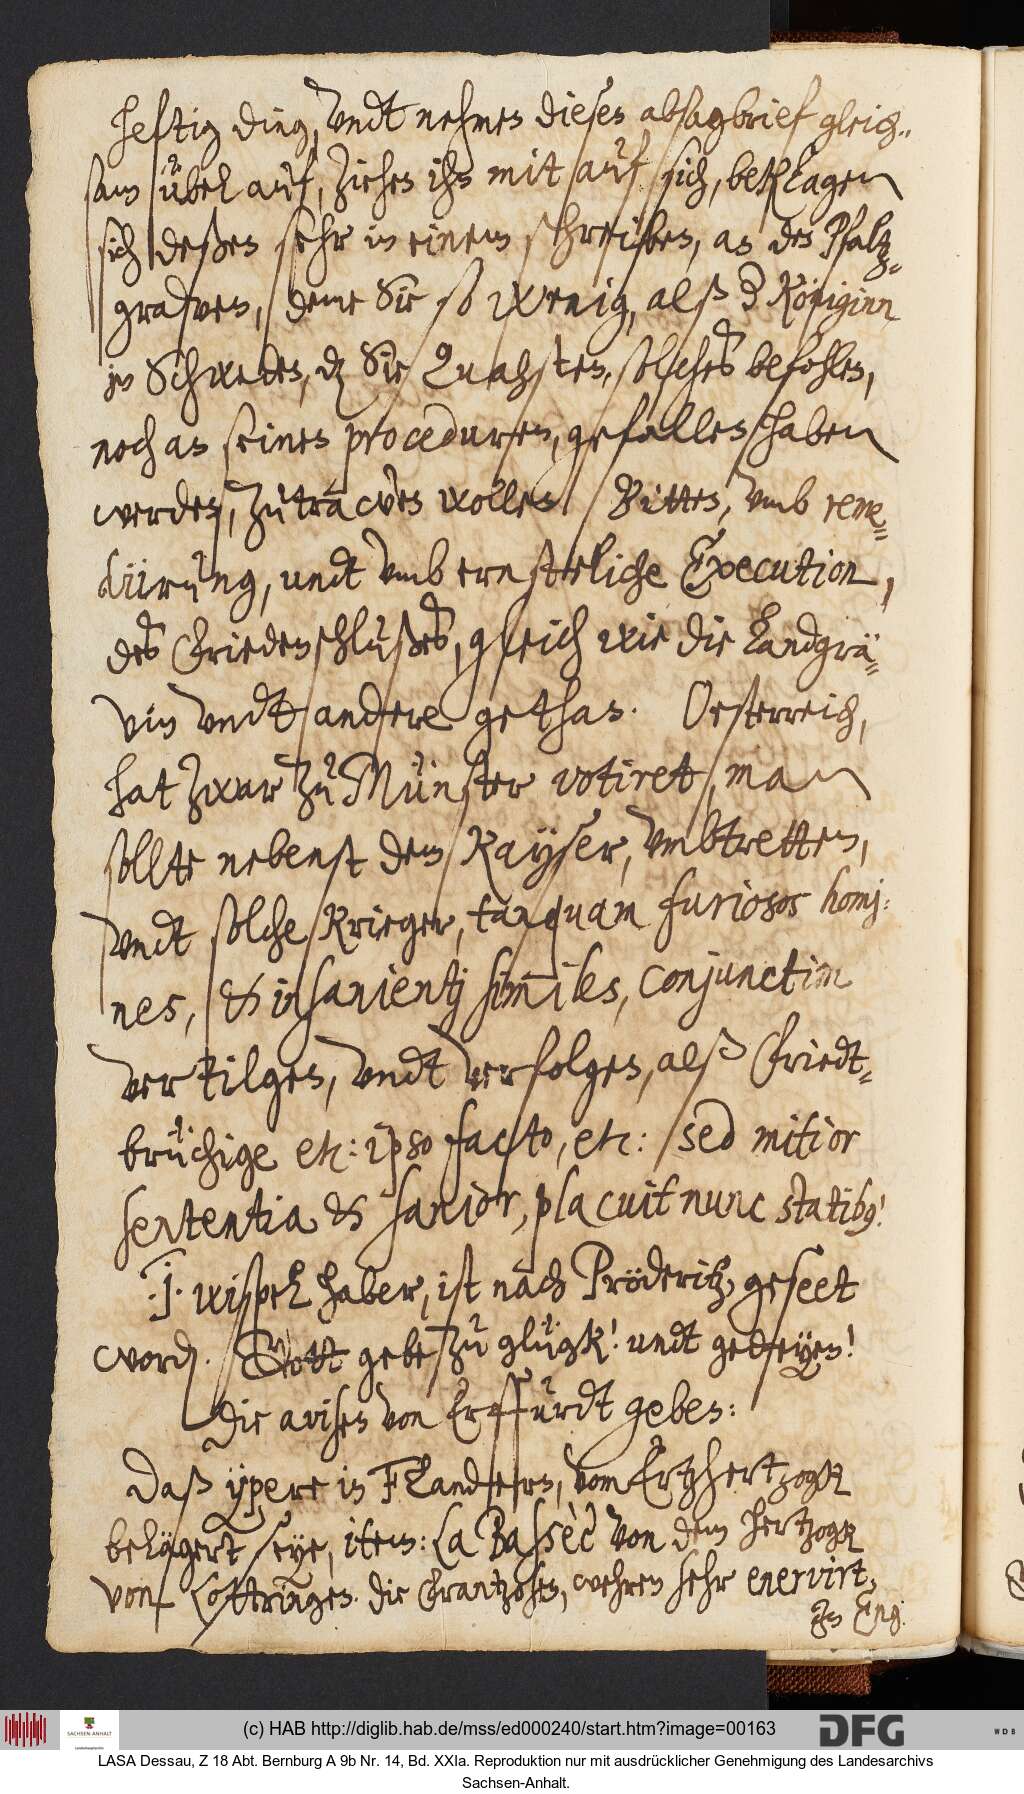 heftig ding, undt nehmen dieses absagbrief gleich„
sam übel auf, ziehen ihn mit auf sich, beklagen
sich deßen sehr in einem schreiben, an den Pfaltz„
grafven, deme Sie so wenig, alß d Königinn
in Schweden, dz Sie Quachsten, solches befohlen,
noch an seinen proceduren, gefallen haben
werden, zutrawen wollen. Bitten, umb reme„
diirung, undt umb ernstliche Execution,
des Friedenschlußes, gleich wie die Landgrä„
vin undt andere gethan. Oesterreich,
hat zwar zu Münster votiret, man
sollte nebenst dem Kayser, umbtretten,
undt solche Krieger, tanquam furiosos homj:
nes, & insanientj similes, conjunctim
vertilgen, undt verfolgen, alß Friedt„
brüchige etc: ipso facto, etc: sed mitior
sententia & sanior, placuit nunc statibq!
.J. wispel haber, ist nach Pröderitz, geseet
word. Gott gebe zu glügk! undt gedeyen!
Die avisen von Erffurdt geben:
Daß ÿpere in Flandern, vom Ertzhertzogk
belägert seye, item: La Bassèè von dem Hertzogk
von Lottringen. die Frantzosen, wehren sehr enervirt,
In Eng:
(c) HAB http://diglib.hab.de/mss/ed000240/start.htm?image=00163
SACHSEN-ANHALT
DFG
WDB
LASA Dessau, Z 18 Abt. Bernburg A 9b Nr. 14, Bd. XXIa. Reproduktion nur mit ausdrücklicher Genehmigung des Landesarchivs
Sachsen-Anhalt.